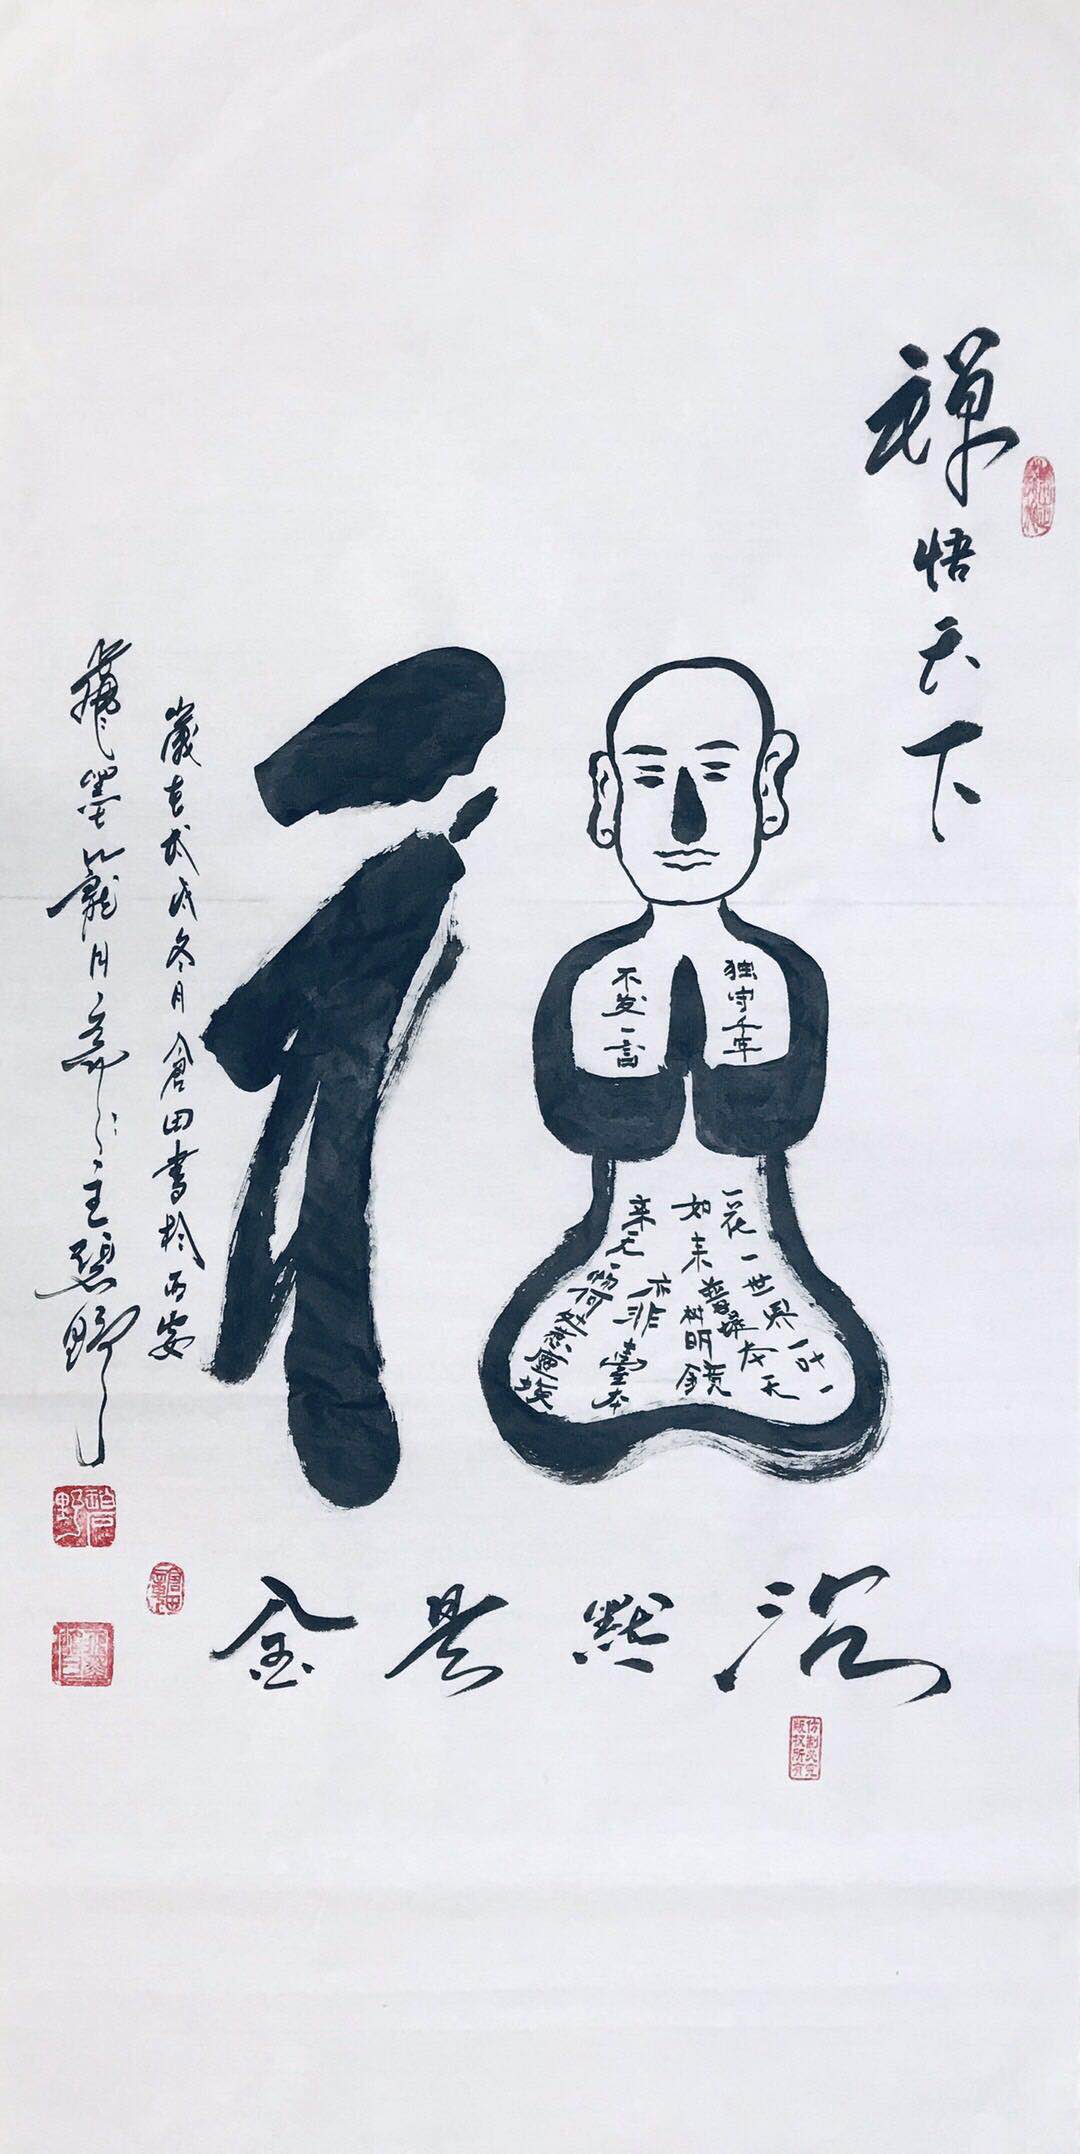 禅悟天下
独守千年
不发一言
一花一世界一叶一
如来菩提本无
树明镜
亦非臺本
来无一物何处惹塵埃
沉默是金
歲在戊戌冬月倉田書於西安
墨籠月齋主碧野
碧野
仿制必究
版权所有